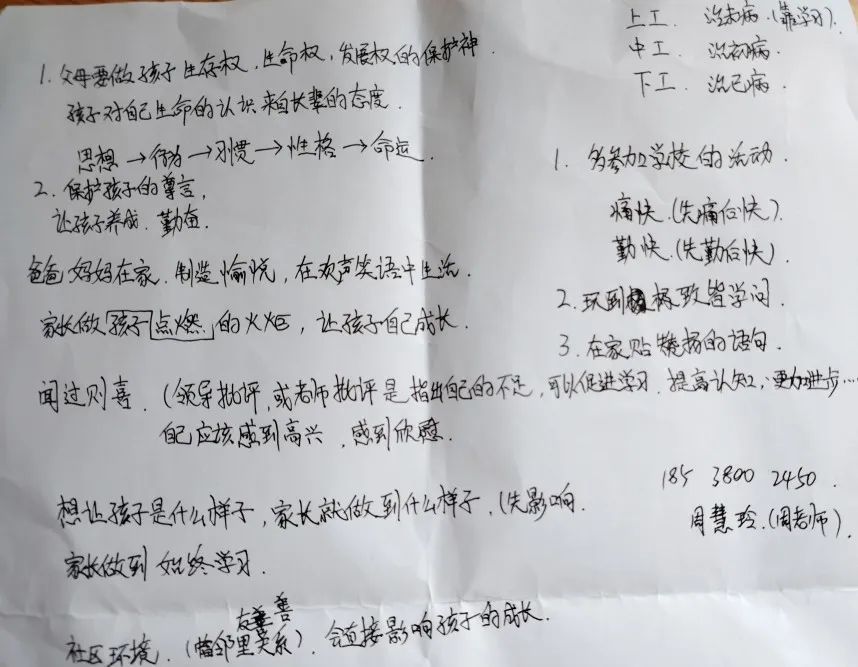 1. 父母要做孩子生存权、生命权、发展权的保护神.
孩子对自己生命的认识来自长辈的态度.
思想→行为→习惯→性格→命运.
2. 保护孩子的尊言,
让孩子养成. 勤奋.
爸爸妈妈在家. 制造愉悦, 在欢声笑语中生活.
家长做孩子点燃的火炬, 让孩子自己成长.
闻过则喜. (领导批评, 或老师批评是指出自己的不足, 可以促进学习. 提高认知, 更加进步…
自己应该感到高兴, 感到欣慰.
想让孩子是什么样子, 家长就做到什么样子, (先影响.
家长做到 始终学习.
友善
社区环境. (邻里关系). 会直接影响孩子的成长.
上工. 治未病. (靠学习).
中工. 治初病.
下工. 治已病.
1. 多参加学校的活动.
痛快. (先痛后快).
勤快. (先勤后快).
2. 致皆学问.
3. 在家贴表扬的语句.
185 3800 2450.
周慧玲. (周老师).